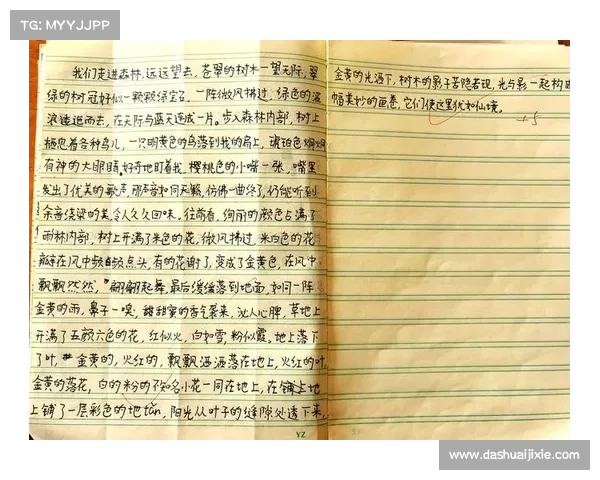 TG: MYYJJPP
我们走进森林,远远望去,苍翠的树木一望无际,翠
绿的树冠好似一颗颗绿宝石,一阵微风拂过,绿色的波
浪随追而去,在天际与蓝天连成一片。步入森林内部,树上
栖息着各种鸟儿,一只明黄色的鸟落到我的肩上,琥珀色炯炯
有神的大眼睛,好奇地盯着我,樱桃色的小嘴一张,嘴里
发出了优美的歌声,那声音如同天籁,仿佛一曲终了,仍能听到
余音绕梁的美,令人久久回味。往前看,绚丽的颜色占满了
雨林内部,树上开满了米色的花,微风拂过,米白色的花
瓣在风中频频点头,有的花谢了,变成了金黄色,在风中
飘飘然然,翩翩起舞,最后缓缓落到地面,如同一阵
金黄的雨,鼻子一嗅,甜甜蜜的香气袭来,沁人心脾,草地上
开满了五颜六色的花,红似火,白如雪,粉似霞。地上落下
了叶,金黄的,火红的,飘飘洒洒落在地上,火红的叶
金黄的落花,白的粉的不知名小花一同在地上,在铺上地
上铺了一层彩色的地毯,阳光从叶子的缝隙处透下来,
金黄的光洒下,树木的影子若隐若现,光与影一起构成
幅美妙的画卷,它们使这里犹如仙境。
+5
YZ
www.dashuaijixie.com